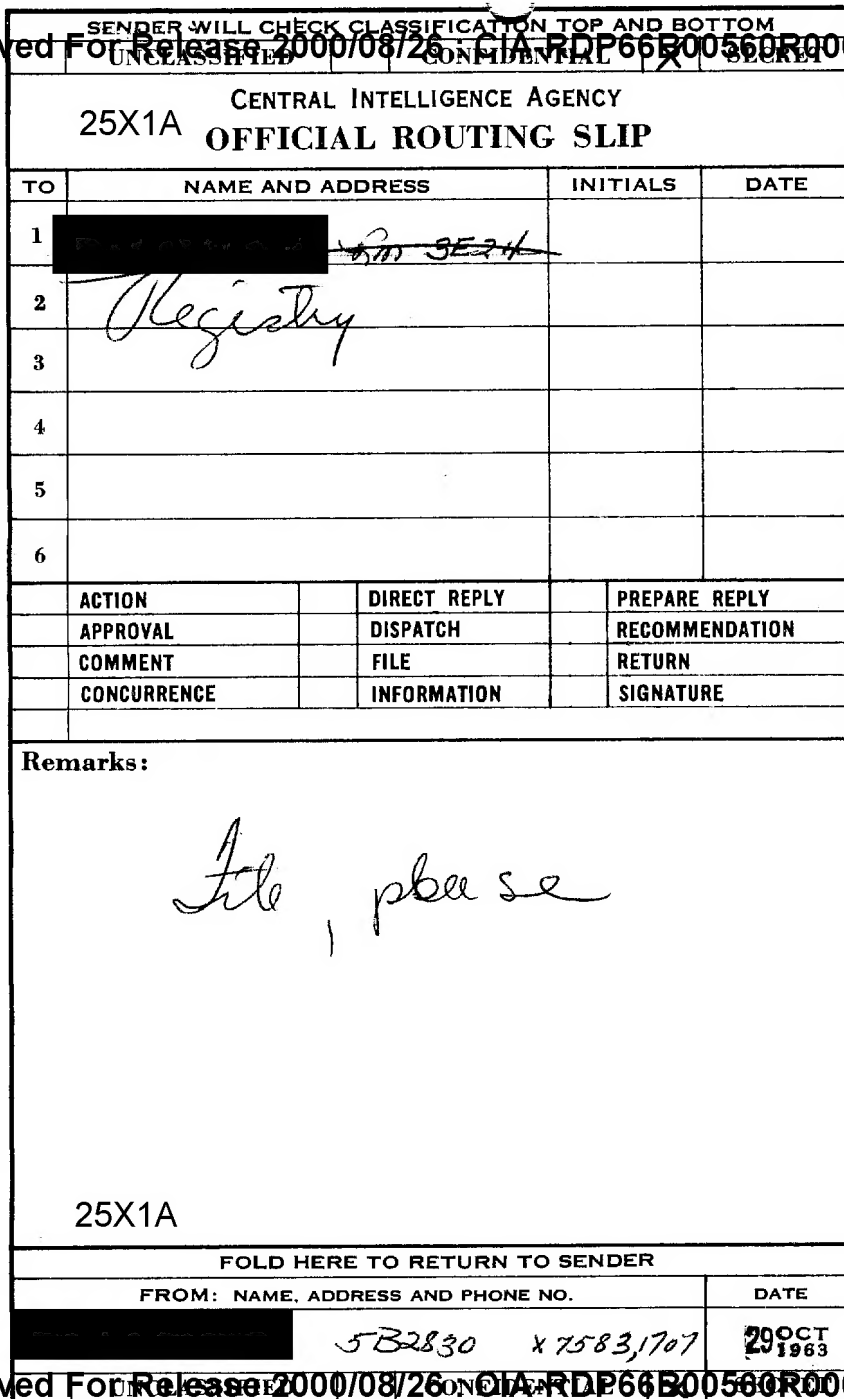 SENDER WILL CHECK CLASSIFICATION TOP AND BOTTOM
ved For Release 2000/08/26 : CIA-RDP66B00560R000
UNCLASSIFIED CONFIDENTIAL X SECRET
CENTRAL INTELLIGENCE AGENCY
25X1A
OFFICIAL ROUTING SLIP
TO NAME AND ADDRESS INITIALS DATE
1 Rm 3E24
2 Registry
3
4
5
6
ACTION DIRECT REPLY PREPARE REPLY
APPROVAL DISPATCH RECOMMENDATION
COMMENT FILE RETURN
CONCURRENCE INFORMATION SIGNATURE
Remarks:
File, please
25X1A
FOLD HERE TO RETURN TO SENDER
FROM: NAME, ADDRESS AND PHONE NO. DATE
5B2830 x7583,1707 29 OCT 1963
UNCLASSIFIED CONFIDENTIAL SECRET
ved For Release 2000/08/26 : CIA-RDP66B00560R000